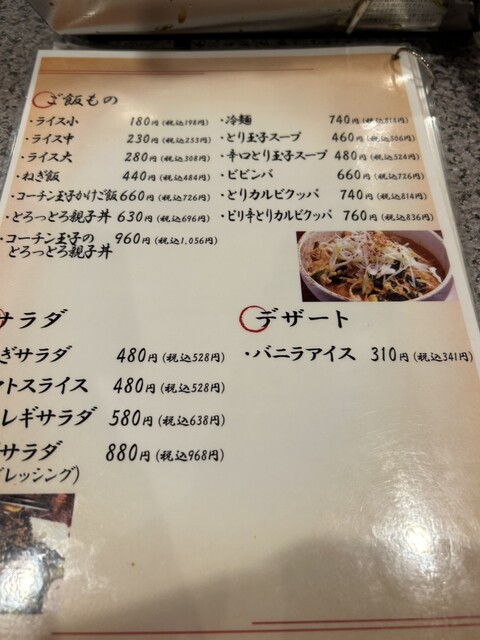 ご飯もの
・ライス小 180円(税込198円)
・ライス中 230円(税込253円)
・ライス大 280円(税込308円)
・ねぎ飯 440円(税込484円)
・コーチン玉子かけご飯 660円(税込726円)
・とろっとろ親子丼 630円(税込696円)
・コーチン玉子の
とろっとろ親子丼 960円(税込1,056円)
・冷麺 740円(税込814円)
・とり玉子スープ 460円(税込506円)
・辛口とり玉子スープ 480円(税込524円)
・ビビンバ 660円(税込726円)
・とりカルビクッパ 740円(税込814円)
・ピリ辛とりカルビクッパ 760円(税込836円)
サラダ
ぎサラダ 480円(税込528円)
マトスライス 480円(税込528円)
レギサラダ 580円(税込638円)
サラダ 880円(税込968円)
ドレッシング)
デザート
・バニラアイス 310円(税込341円)